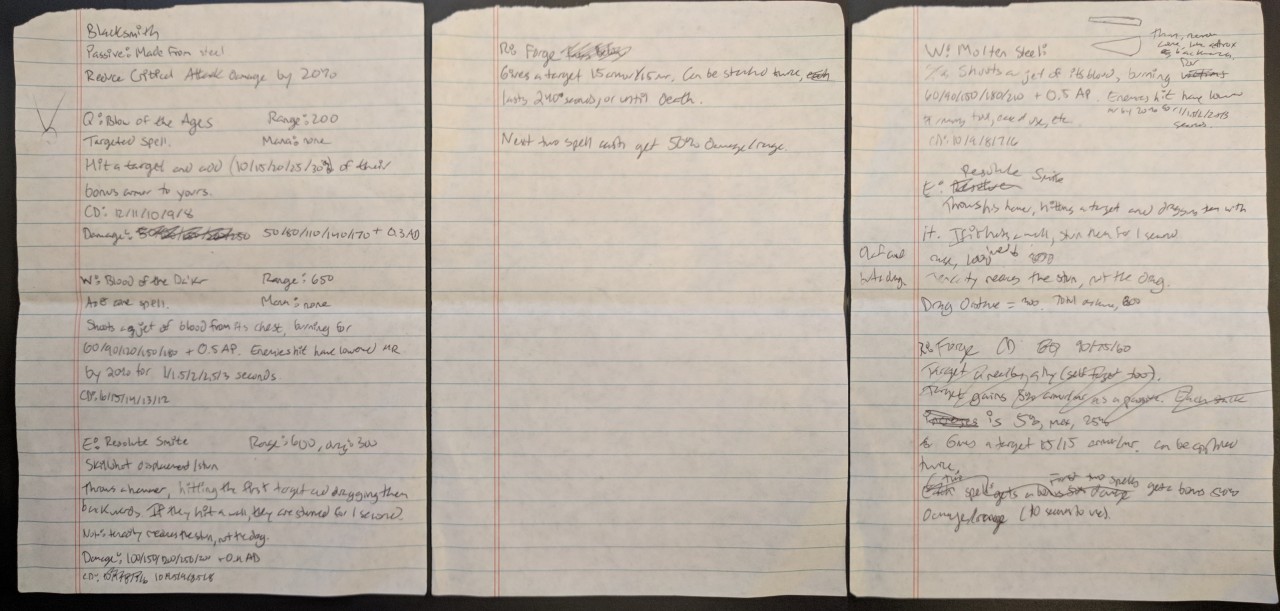 Blacksmith
Passive: Made From steel
Reduce Critical Attack Damage by 20%
Q: Blow of the Ages Range: 200
Targeted spell. Mana: none
Hit a target and add (10/15/20/25/30%) of their
bonus armor to yours.
CD: 12/11/10/9/8
Damage: 50/80/110/140/170 + 0.3 AD
W: Blood of the Range: 650
AoE cone spell. Mana: none
Shoots a jet of blood from its chest, burning for
60/90/120/150/180 + 0.5 AP. Enemies hit have lowered MR
by 20% for 1/1.5/2/2.5/3 seconds.
CD: 16/15/14/13/12
E: Resolute Smite Range: 600, drag: 300
Skillshot displacement/stun
Throws a hammer, hitting the first target and dragging them
backwards. If they hit a wall, they are stunned for 1 second.
Note: tenacity reduces the stun, not the drag.
Damage: 100/150/200/250/ + 0. AD
CD:
R: Forge
Gives a target 15 armor/15 mr. Can be stacked twice,
lasts 240 seconds, or until death.
Next two spell casts get 50% damage/range.
W: Molten Steel:
Shoots a jet of its blood, burning for
60/90/150/180/210 + 0.5 AP. Enemies hit have lower
mr by 20% for 1/1.5/2/2.5/3
seconds.
CD: 10/9/8/7/6
Resolute Smite
E:
Throws his hammer, hitting a target and dragging them with
it. If it hits a wall, stun them for 1 second
Tenacity reduces the stun, not the drag.
Drag Distance = 300. Total distance, 800
R: Forge CD 90/75/60
Target a nearby ally (self target too).
Target gains 5% armor/mr as a passive. Each stack
is 5%, max, 25%
Gives a target 15/15 armor/mr. Can be applied
twice,
First two spells get a bonus 50%
Damage/range (10 seconds to use).